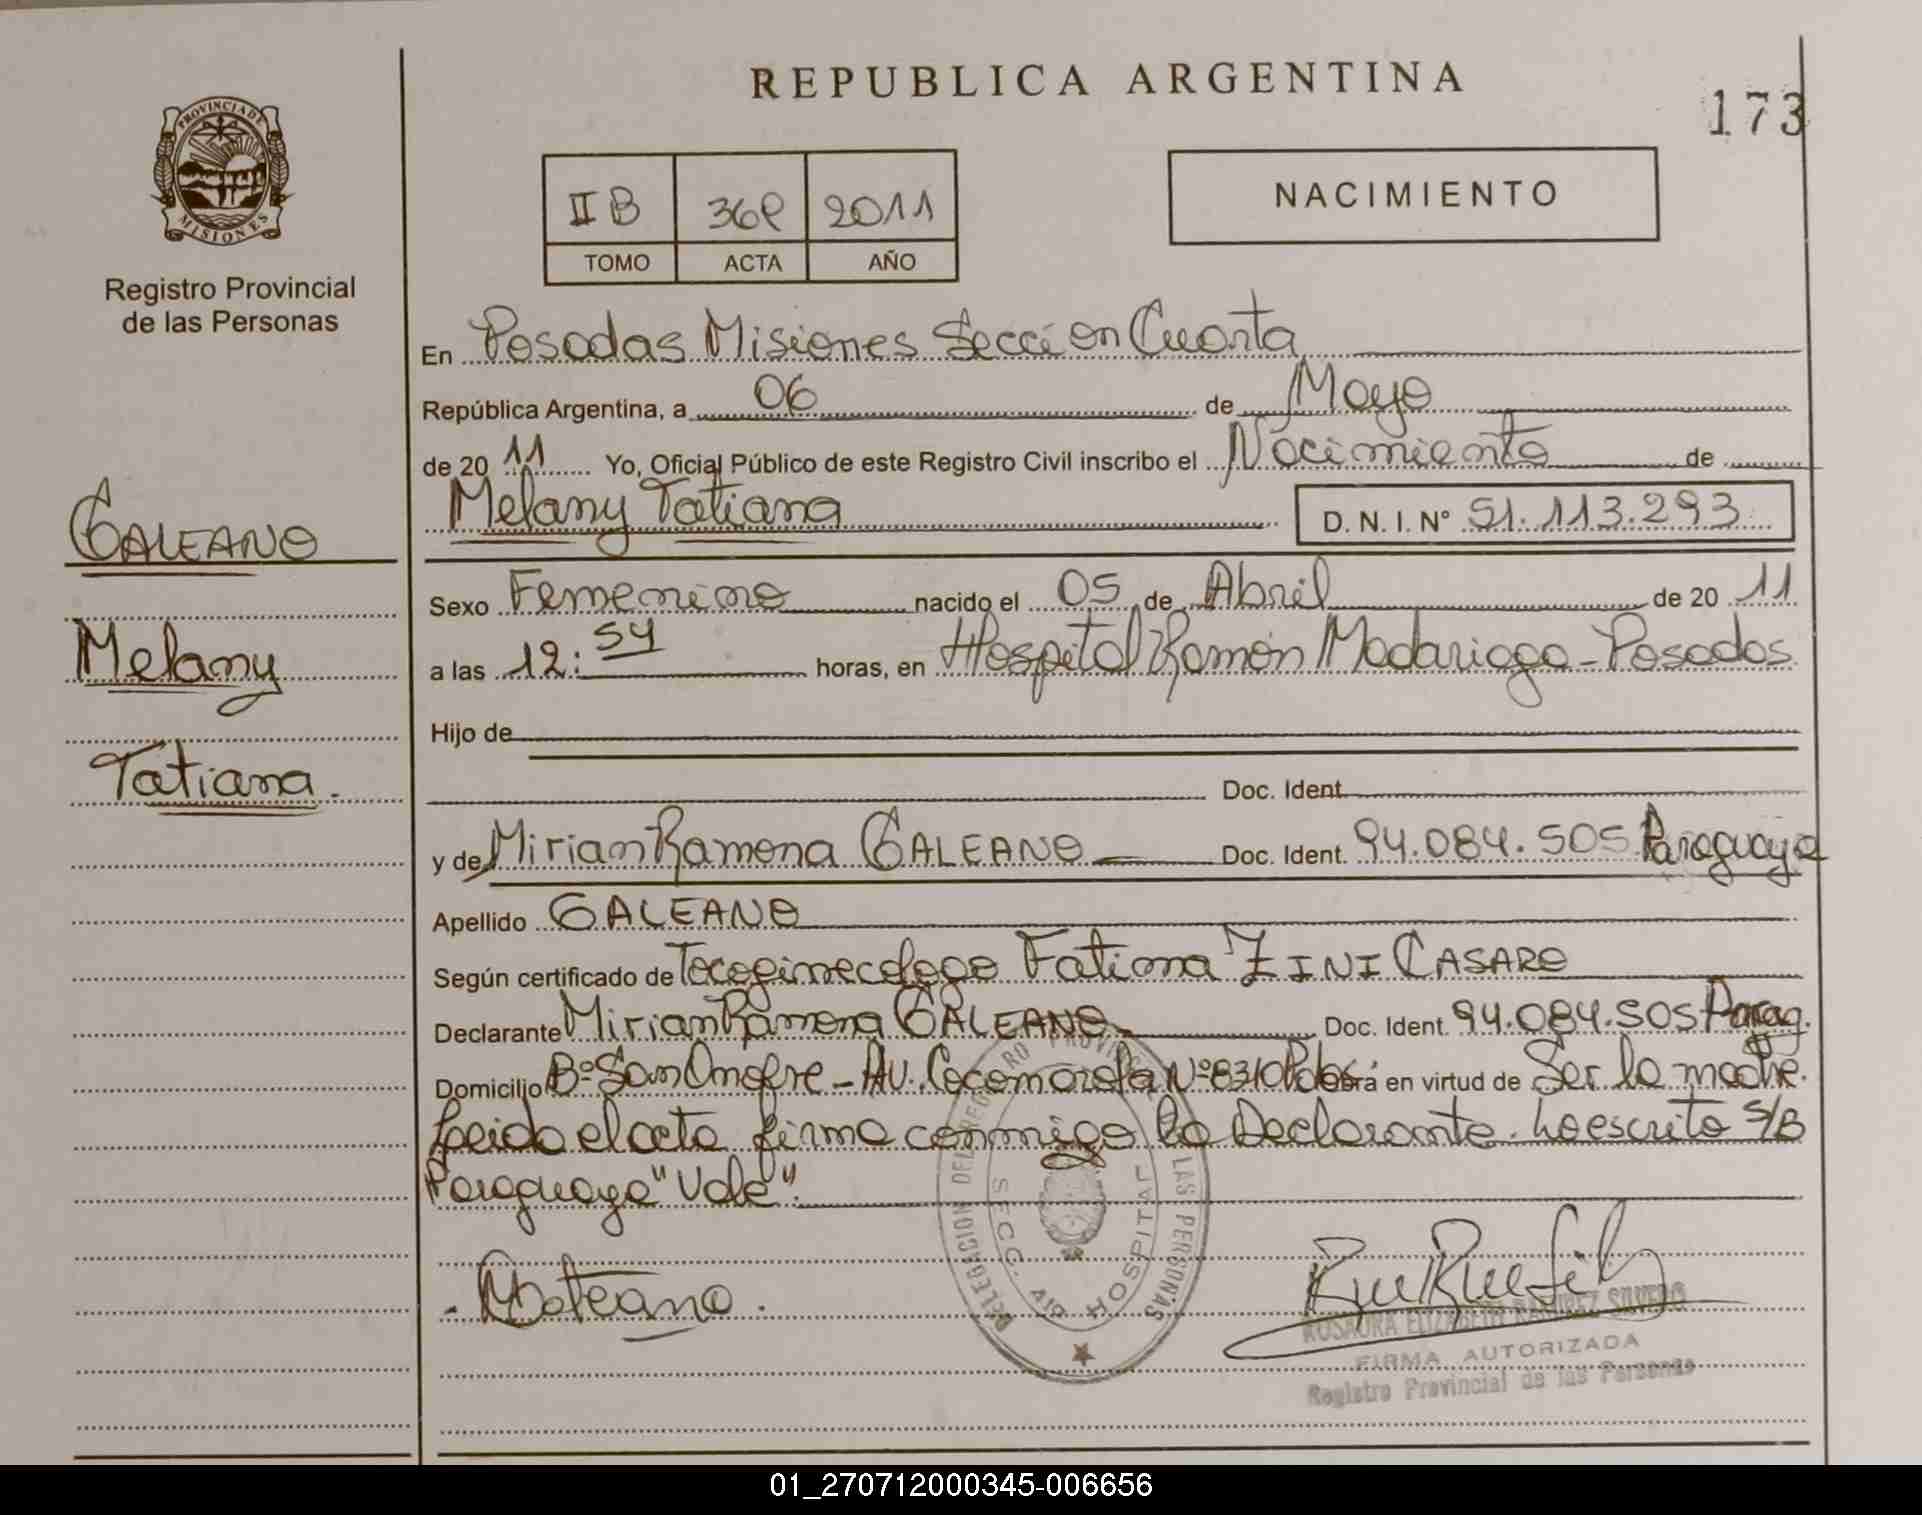 REPUBLICA ARGENTINA
173
PROVINCIA DE MISIONES
Registro Provincial
de las Personas
II B 2011
TOMO ACTA AÑO
NACIMIENTO
En Posadas Misiones Sección Cuarta
República Argentina, a 06 de Mayo
de 20 11 Yo, Oficial Público de este Registro Civil inscribo el Nacimiento de
Melany Tatiana D. N. I. Nº 51.113.293
GALEANO
Melany
Tatiana.
Sexo Femenino nacido el 05 de Abril de 20 11
a las 12:54 horas, en Hospital Ramón Madariaga - Posadas
Hijo de
Doc. Ident.
y de Mirian Ramona GALEANO Doc. Ident. 94.084.505 Paraguaya
Apellido GALEANO
Según certificado de Tocoginecologo Fatima ZINI CASARO
Declarante Mirian Ramona GALEANO Doc. Ident. 94.084.505 Parag.
Domicilio Bº San Onofre - Av. Cocomarola Nº 8310 Pdas. Obrá en virtud de Ser la madre.
Leida el acta firma conmigo la Declarante. Lo escrito S/B
Paraguaya "Vale".
DELEGACION DEL REGISTRO PROVINCIAL DE LAS PERSONAS
SECC. 4ta HOSPITAL
ROSAURA ELIZABETH RAMIREZ SILVERO
FIRMA AUTORIZADA
Registro Provincial de las Personas
01_270712000345-006656